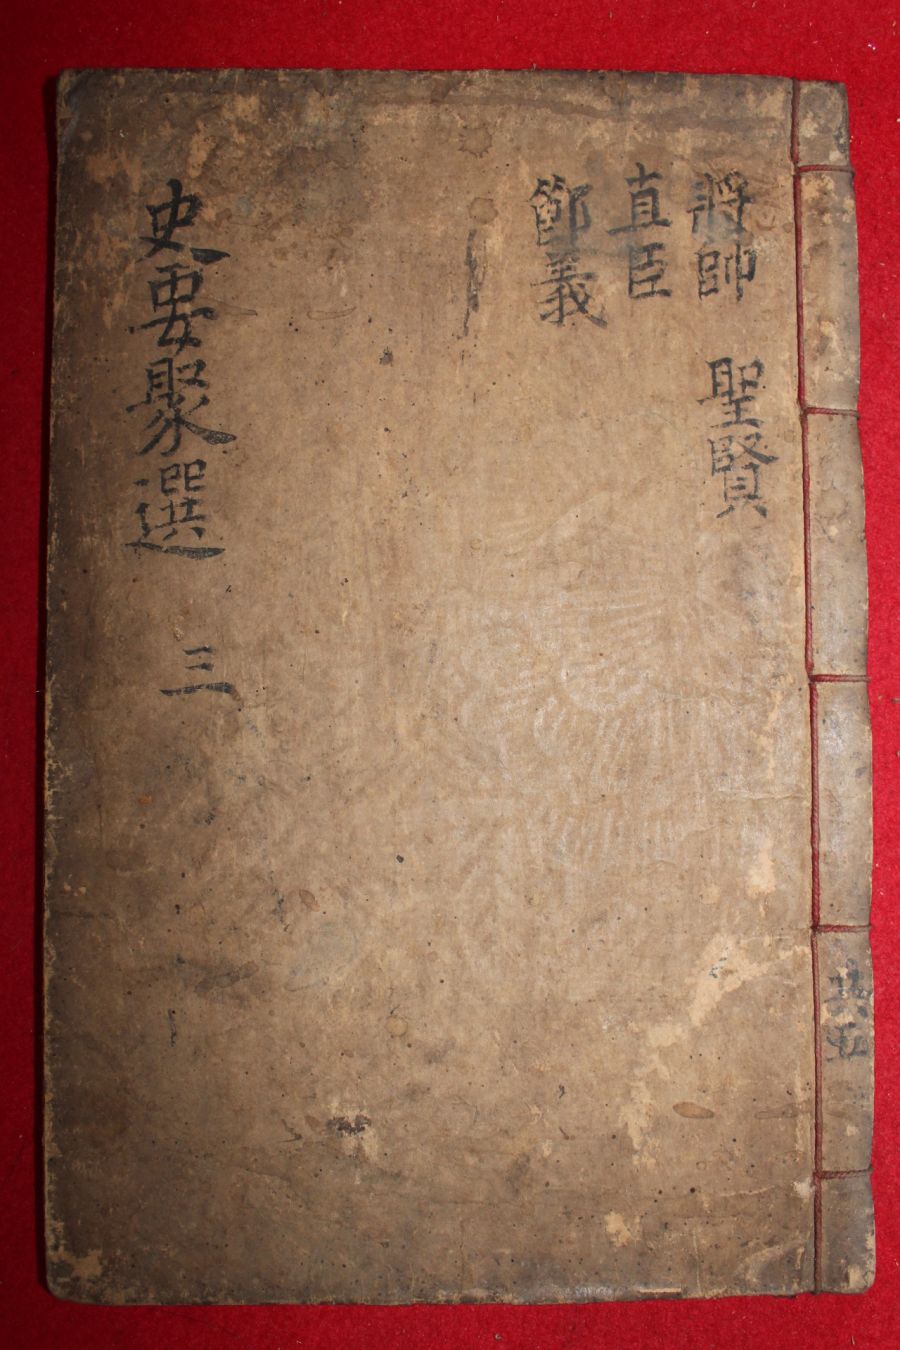 將帥 聖賢
直臣
節義
史要聚選 三
共五